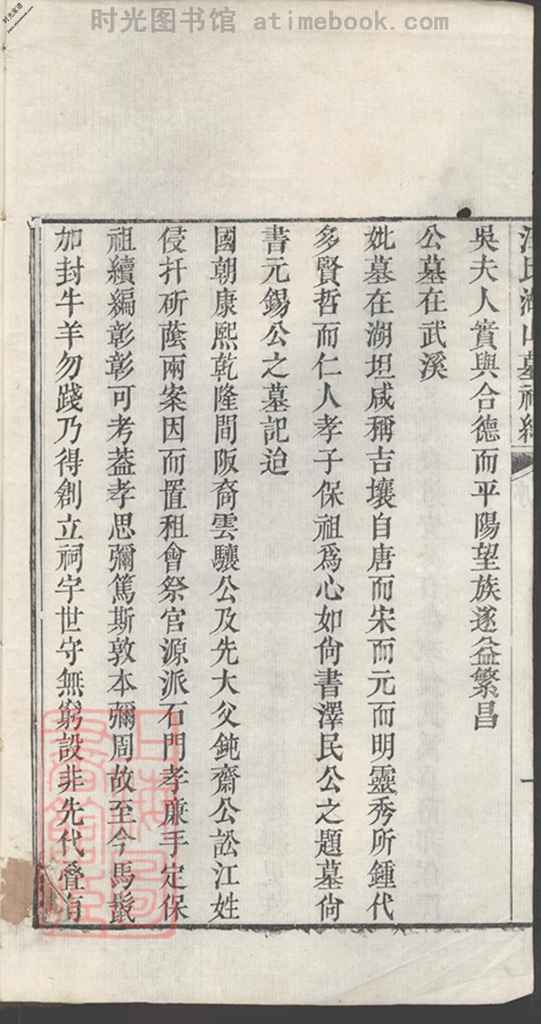 时光图书馆 atimebook.com
吳夫人實與合德而平陽望族遂益繁昌
公墓在武溪
妣墓在湖坦咸稱吉壤自唐而宋而元而明靈秀所鍾代
多賢哲而仁人孝子保祖爲心如尙書澤民公之題墓尙
書元錫公之墓記迨
國朝康熙乾隆間阪裔雲驤公及先大父鈍齋公訟江姓
侵扦斫蔭兩案因而置租會祭官源派石門孝廉手定保
祖續編彰彰可考葢孝思彌篤斯敦本彌周故至今馬鬛
加封牛羊勿踐乃得創立祠宇世守無窮設非先代疊有